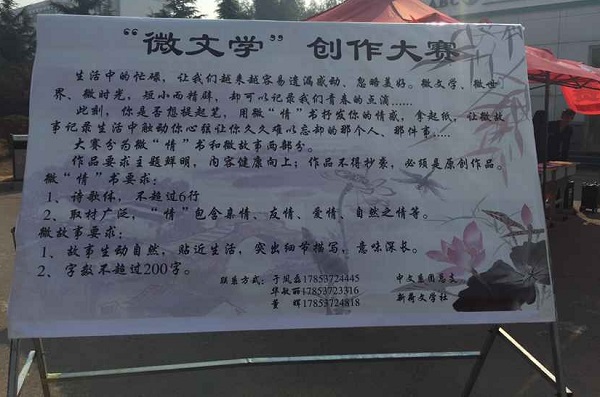 “微文学”创作大赛
生活中的忙碌，让我们越来越容易遗漏感动、忽略美好。微文学，微世
界、微时光，短小而精辟，却可以记录我们青春的点滴……
此刻，你是否想提起笔，用微“情”书抒发你的情感，拿起纸，让微故
事记录生活中触动你心弦让你久久难以忘却的那个人、那件事……
大赛分为微“情”书和微故事两部分。
作品要求主题鲜明，内容健康向上；作品不得抄袭，必须是原创作品。
微“情”书要求：
1、诗歌体，不超过6行
2、取材广泛，“情”包含亲情、友情、爱情、自然之情等。
微故事要求：
1、故事生动自然，贴近生活，突出细节描写，意味深长。
2、字数不超过200字。
联系方式：于凤磊17853724445
华敏丽17853723316
董辉17853724818
中文系团总支
新荷文学社